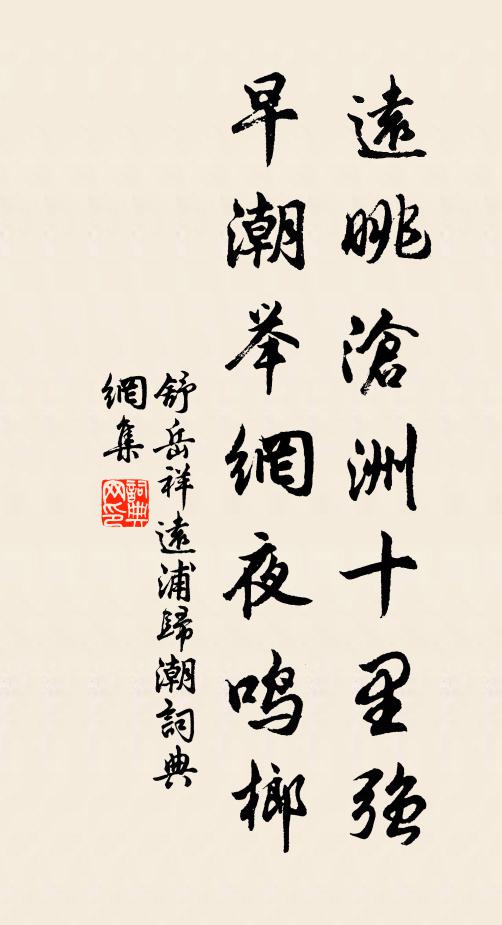 遠眺滄洲十里強
早潮举網夜鳴榔
舒岳祥遠浦歸潮詞典
網集
詞典
网印